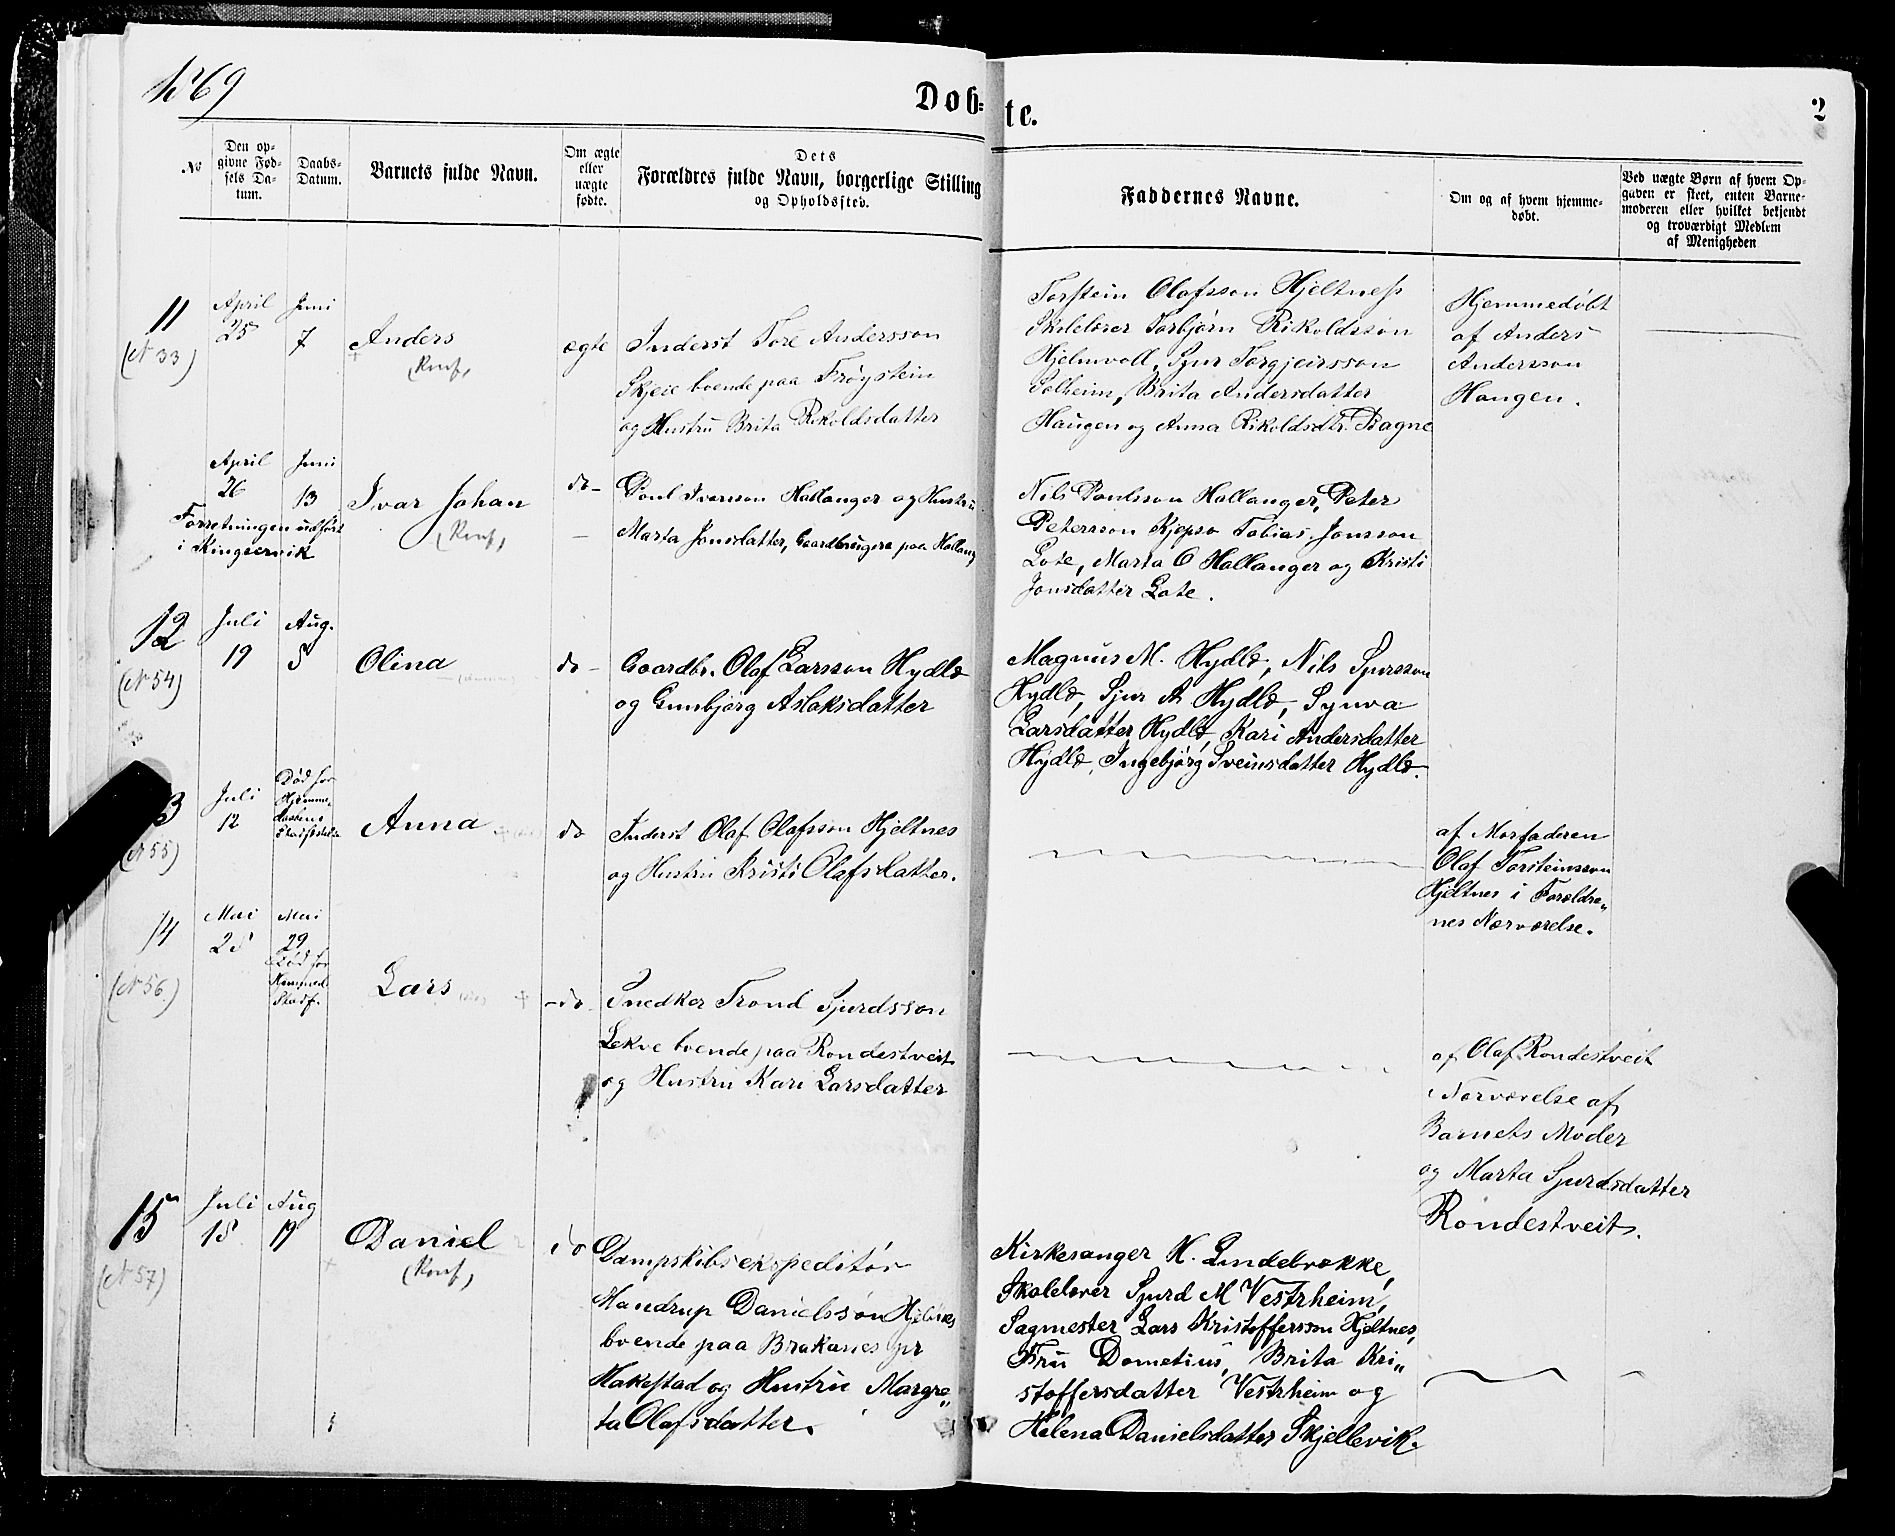 1869
Døb=
te.
2
No
Den op-
givne Fød-
sels Da-
tum.
Daabs-
Datum.
Barnets fulde Navn.
Om ægte
eller
uægte
fødte.
Dets
Forældres fulde Navn, borgerlige Stilling
og Opholdssted.
Faddernes Navne.
Om og af hvem hjemme-
døbt.
Ved uægte Børn af hvem Op-
gaven er skeet, enten Barne-
moderen eller hvilket bekjendt
og troværdigt Medlem
af Menigheden
11
(N 33)
April
25
Juni
7
Anders
(Konf,)
ægte
Inderst Tore Andersson
Skjeie boende paa Frøystein
og Hustru Brita Rikoldsdatter
Torstein Olafsson Hjeltness
Skolelærer Torbjørn Rikoldssøn
Hjelmvoll, Sjur Torgjeirsson
Solheim, Brita Andersdatter
Haugen og Anna Rikoldsdtr.
Hjemmedøbt
af Anders
Andersson
Haugen.
April
26
Juni
13
Forretningen udført
i Kingservik
Ivar Johan
(Konf,)
do -
Poul Iversson Hallanger og Hustru
Marta Jonsdatter, Gaardbrugere paa Hallang
Nils Poulsson Hallanger, Peter
Petersson Kjepso Tobias Jonsson
Lote, Marta O Hallanger og Kristi
Jonsdatter Lote.
12
(N 54)
Juli
19
Aug.
5
Olina
do -
Gaardbr. Olaf Larsson Hydle
og Gunbjørg Aslaksdatter
Magnus M. Hydle, Nils Sjursson
Hydle, Sjur A Hydle, Synva
Larsdatter Hydle, Kari Andersdatter
Hydle, Ingebjørg Sveinsdatter Hydle.
3
(N 55)
Juli
12
Død før
Hjemme-
daabens
Stadfæstelse
Anna
do
Inderst Olaf Olafsson Hjeltnes
og Hustru Kristi Olafsdatter.
af Morfaderen
Olaf Torsteinsson
Hjeltnes i Foreldre„
nes Nærværelse.
14
(N 56)
Mai
28
Mai
29
Død før
Stadf.
Lars
- do -
Snedker Trond Sjurdsson
Lekve boende paa Rondestveit
og Hustru Kari Larsdatter
af Olaf Rondestveit
i Nærværelse af
Barnets Moder
og Marta Sjurdsdatter
Rondestveit.
15
(N 57)
Juli
18
Aug
19
Daniel
(Konf,)
do
Dampskibsekspeditør
Mandrup Danielssøn Hjeltnes
boende paa Brakanes pr
Hakestad og Hustru Margre„
ta Olafsdatter.
Kirkesanger H. Lindebrække,
Skolelærer Sjurd M Vestrheim,
Sagmester Lars Kristoffersson Hjeltnes,
Fru Dometius, Brita Kri„
stoffersdatter Vestrheim og
Helena Danielsdatter Skjellevik.